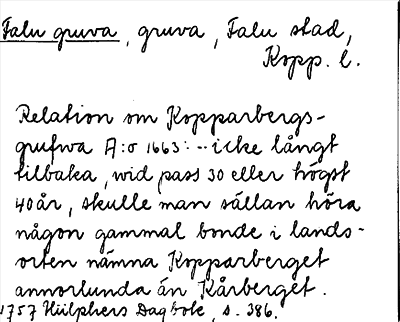 Falu gruva, gruva, Falu stad,
Kopp. l.
Relation om Kopparbergs-
grufwa A:o 1663: -- icke långt
tilbaka, wid pass 30 eller högst
40 år, skulle man sällan höra
någon gammal bonde i lands-
orten nämna Kopparberget
annorlunda än Kårberget.
1757 Hülphers Dagbok, s. 386.